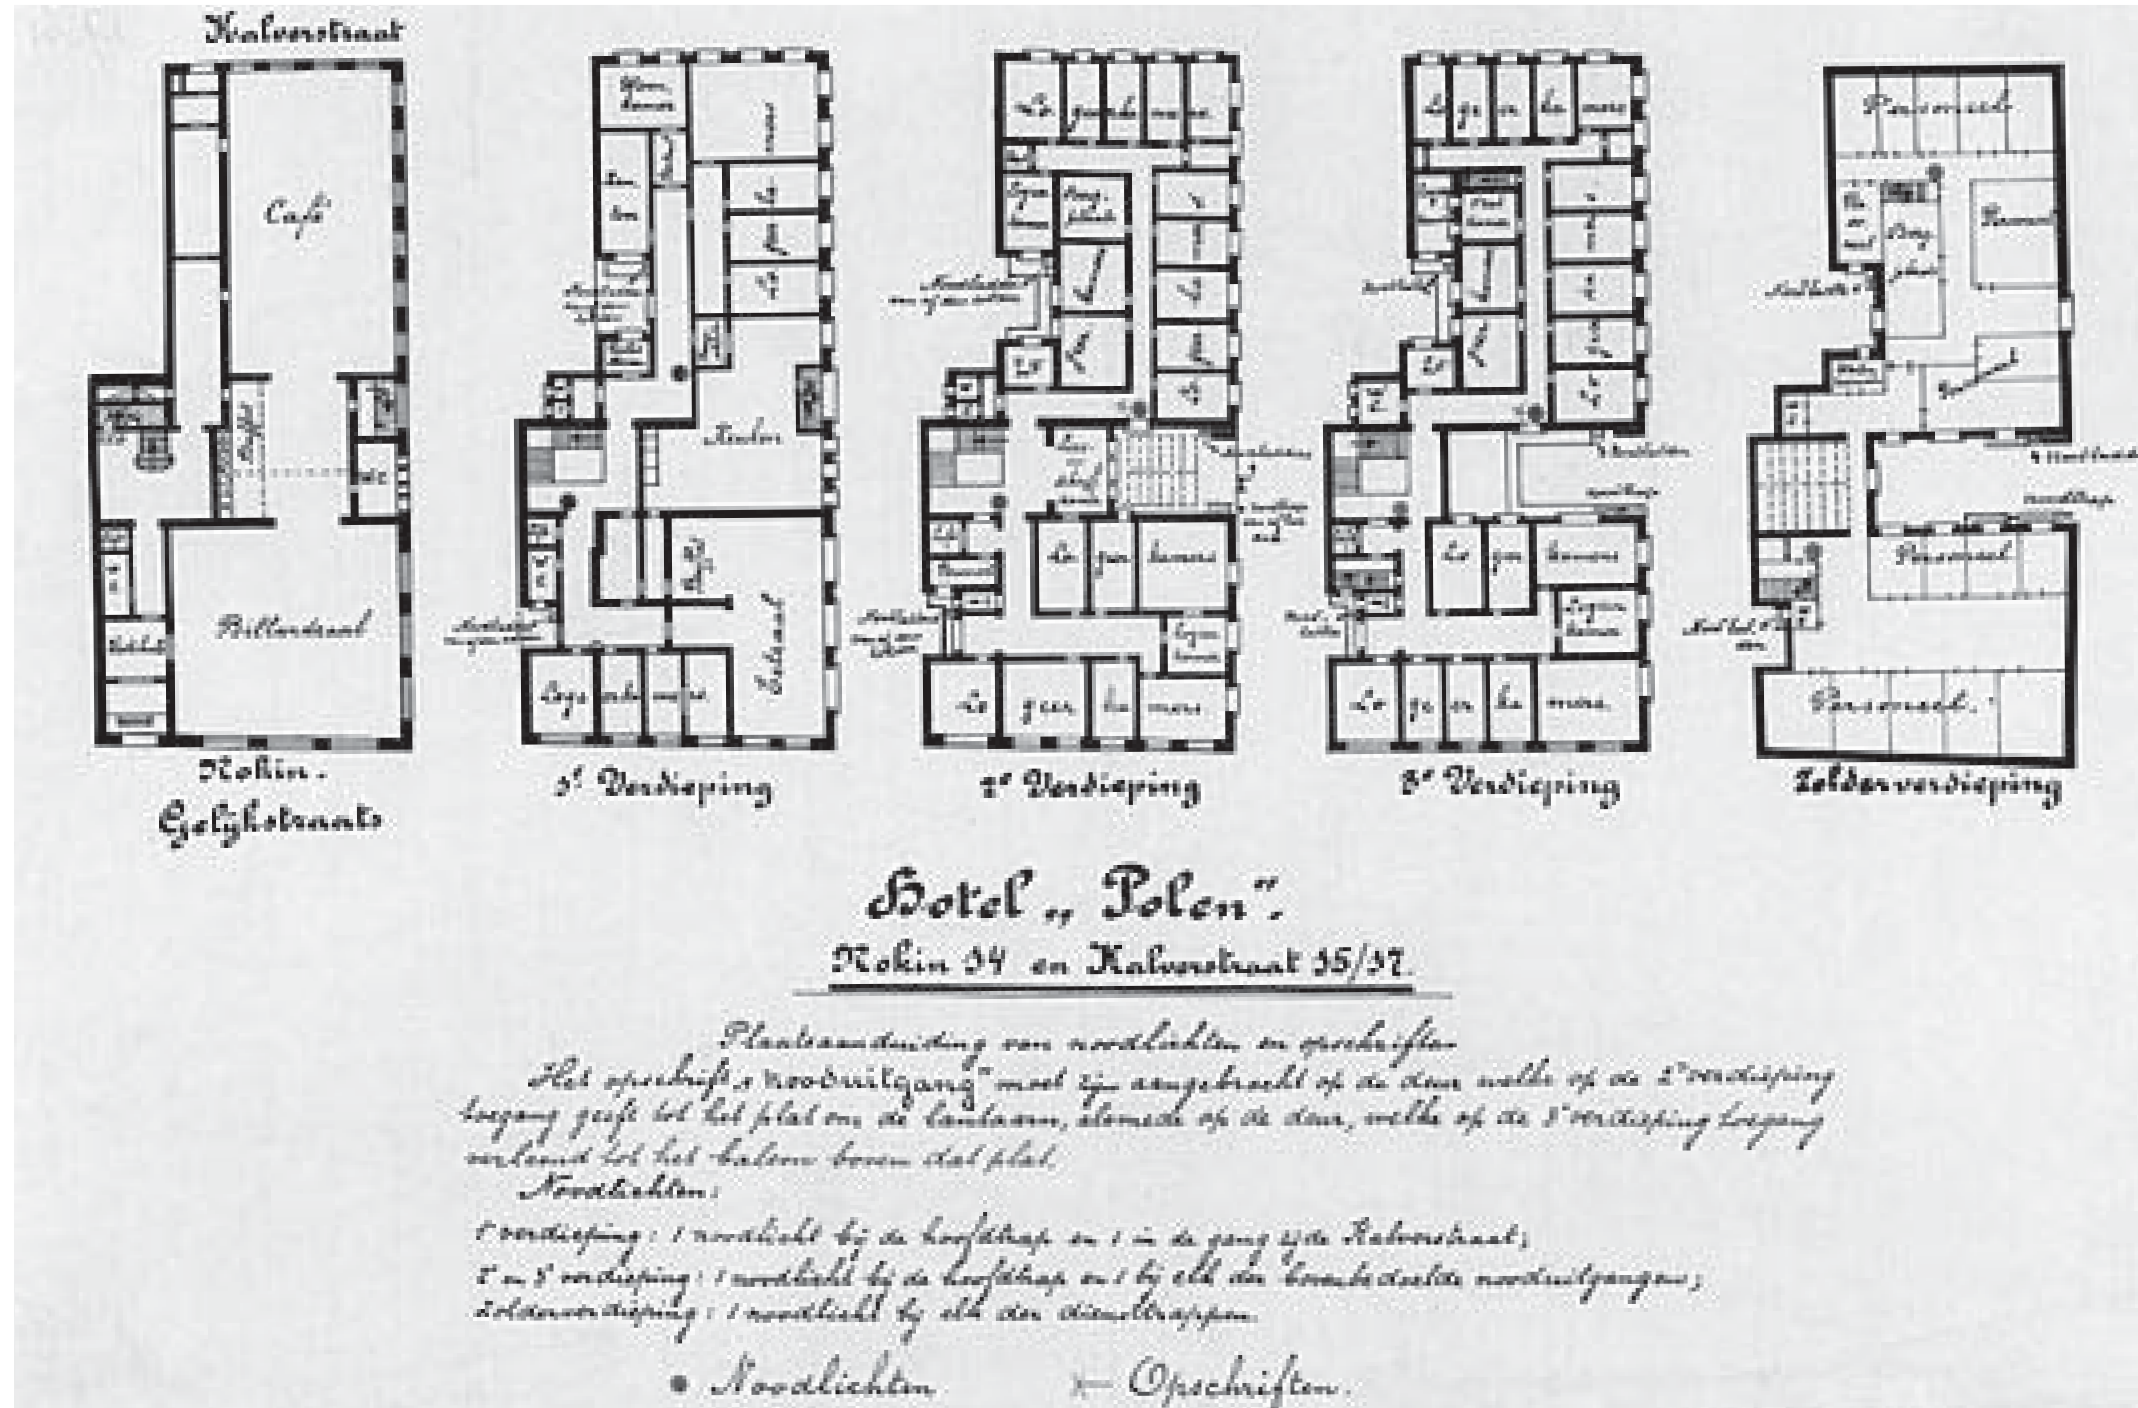 Kalverstraat
Café
Buffet
W.C.
Billardzaal
Rokin.
Gelijkstraats
Keuken
Eetzaal
Logeerkamers.
1e Verdieping
Logeerkamers.
Logeerkamers
Logeerkamers.
2e Verdieping
Logeerkamers
Logeerkamers
Logeerkamers.
3e Verdieping
Personeel
Personeel
Personeel
Personeel
Personeel.
noodtrap
Zolderverdieping
Hotel „Polen”.
Rokin 14 en Kalverstraat 15/17.
Plaatsaanduiding van noodlichten en opschriften
Het opschrift „Nooduitgang” moet zijn aangebracht op de deur welke op de 2e verdieping
toegang geeft tot het plat om de lantaarn, alsmede op de deur, welke op de 3e verdieping toegang
verleend tot het balcon boven dat plat.
Noodlichten:
1e verdieping: 1 noodlicht bij de hoofdtrap en 1 in de gang zijde Kalverstraat;
2e en 3e verdieping: 1 noodlicht bij de hoofdtrap en 1 bij elk der bovenbedoelde nooduitgangen;
Zolderverdieping: 1 noodlicht bij elk der diensttrappen.
Noodlichten
Opschriften.